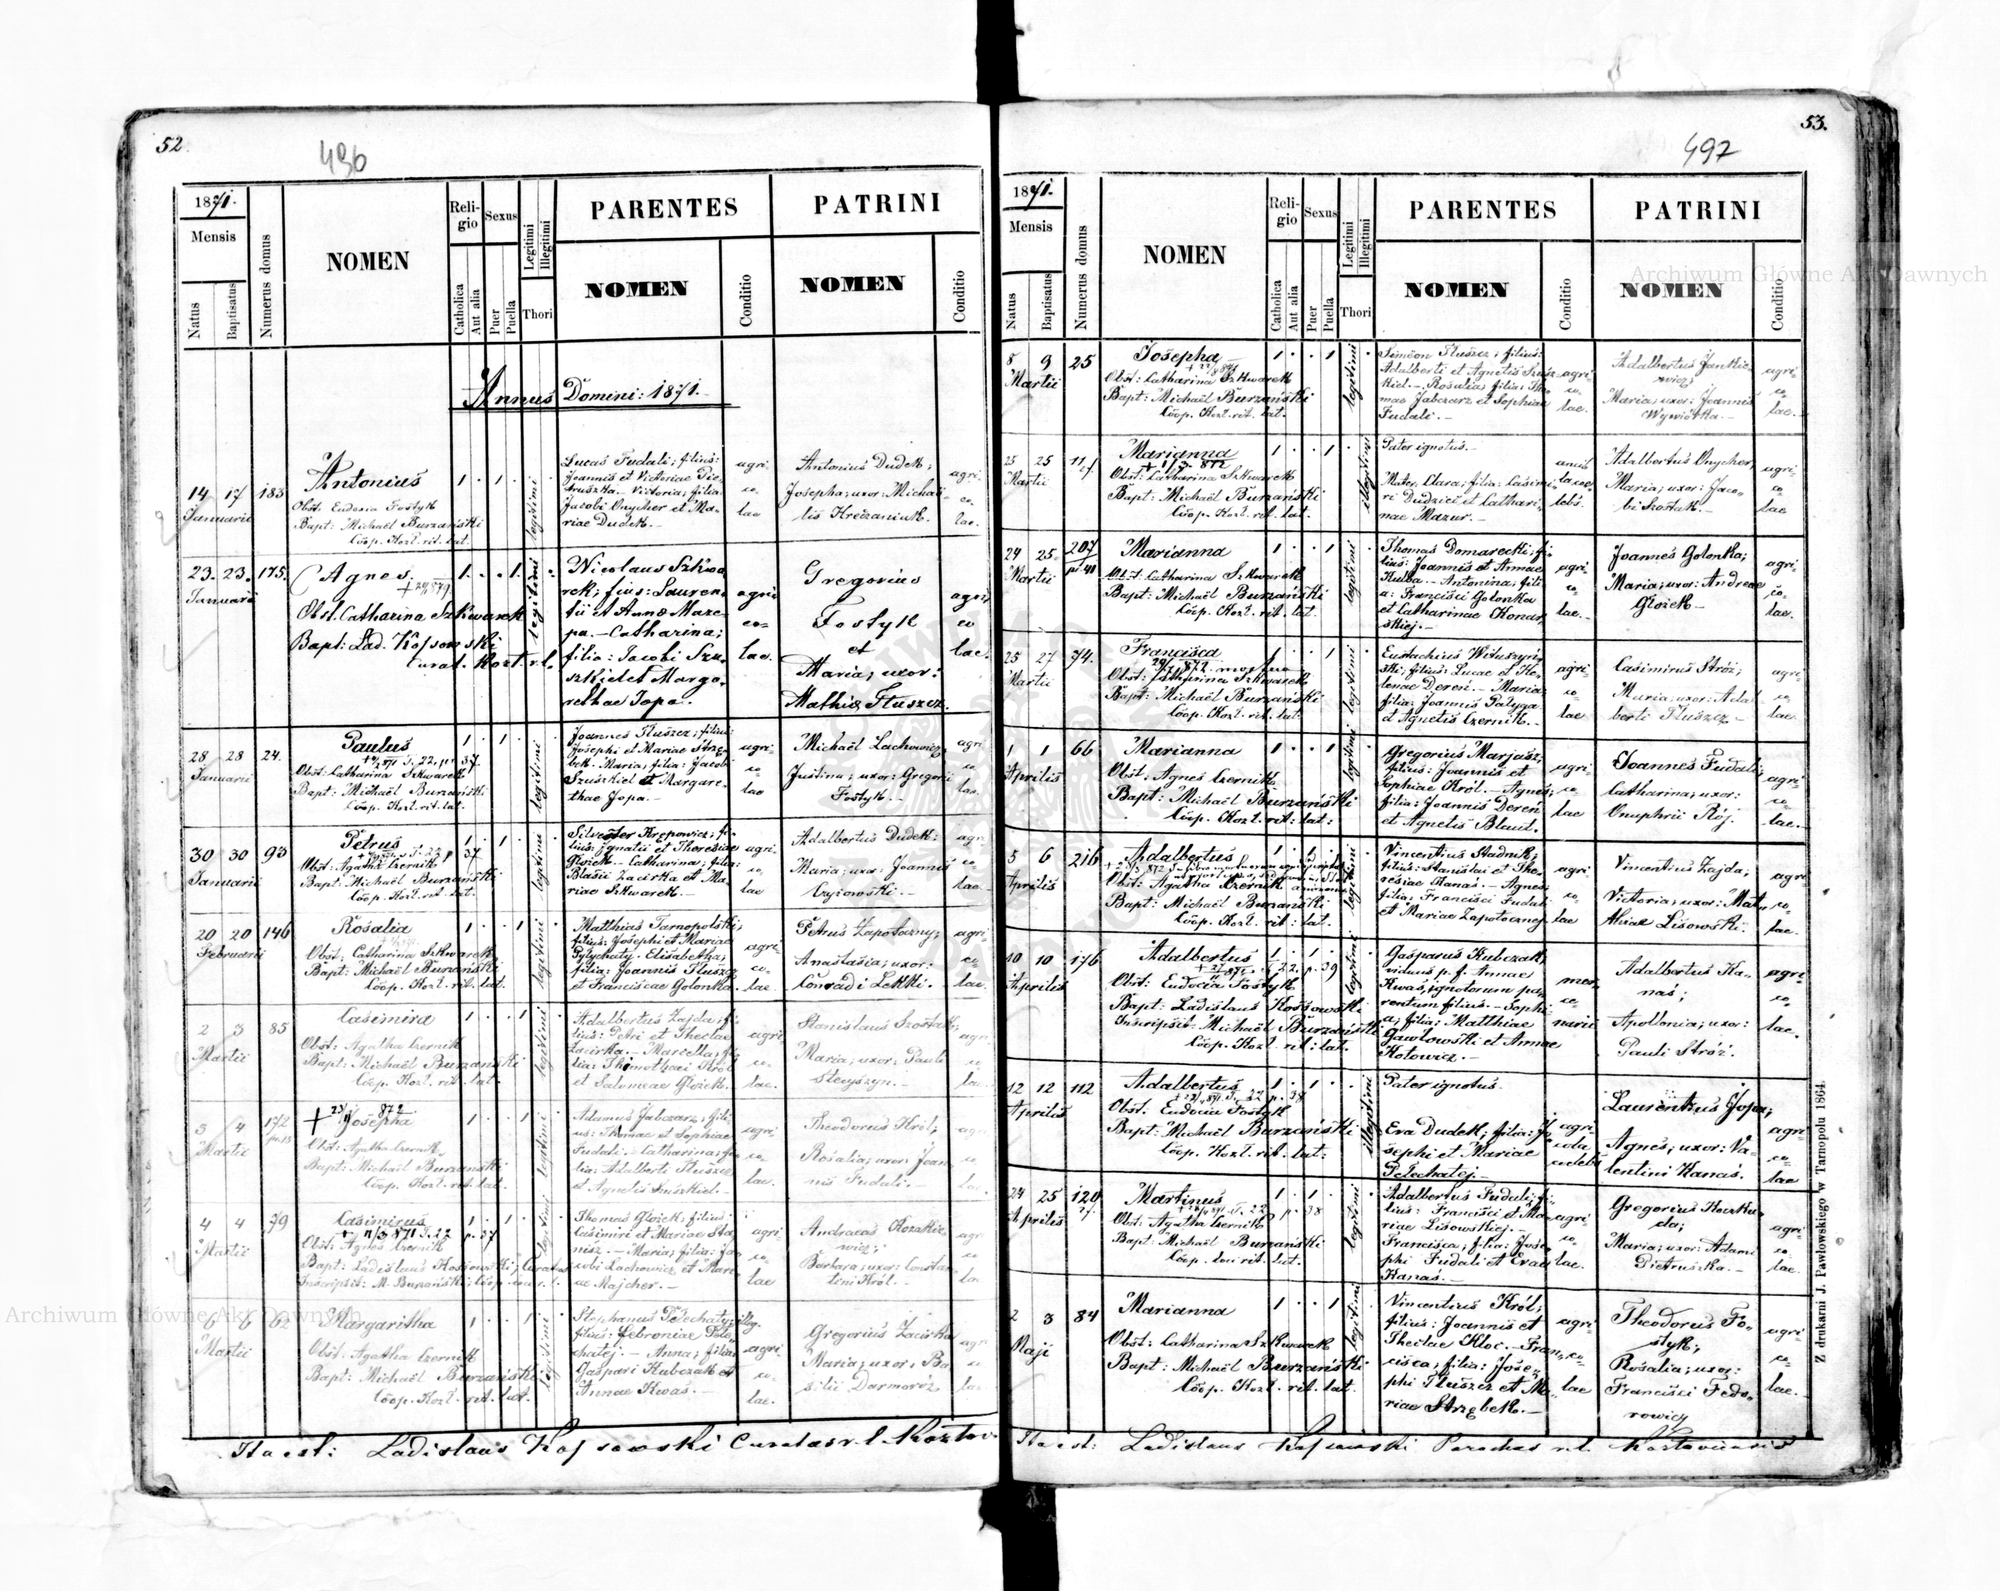 52.
496
1871.
Mensis
Natus
Baptisatus
Numerus domus
NOMEN
Religio
Catholica
Aut alia
Sexus
Puer
Puella
Legitimi
Illegitimi
Thori
PARENTES
NOMEN
Conditio
PATRINI
NOMEN
Conditio
Annus Domini: 1871.
14 17 183
Januarii
Antonius
Obst. Eudocia Fostyk
Bapt: Michaël Burzański
Cöop. Kozl. rit. lat.
1 1
legitimi
Lucas Fudali; filius:
Joannis et Victoriae Pie-
truszka. Victoria; filia:
Jacobi Onycher et Ma-
riae Dudek.
agri
co-
lae
Antonius Dudek;
Josepha; uxor: Michaë-
lis Hreczaniuk.
agri-
co-
lae.
23. 23. 175.
Januarii
Agnes.
Obst. Catharina Szkwarek
Bapt: Lad. Kossowski
curat. Kozl. r. l.
1. 1.
legitimi
Nicolaus Szkwa-
rek; fius: Lauren-
tii et Anna Maze-
pa. – Catharina;
filia: Jacobi Szu-
szkiel et Marga-
rethae Jopa.
agri
co-
lae.
Gregorius
Fostyk
et
Maria, uxor:
Mathiæ Tłuszcz.
agri
co
lae.
28 28 24.
Januarii
Paulus
Obst: Catharina Szkwarek
Bapt: Michaël Burzański
Cöop. Kozl. rit. lat.
1 1
legitimi
Joannes Tłuszcz; filius:
Josephi et Mariae Strzę-
bek. Maria; filia: Jacobi
Szuszkiel et Margare-
thae Jopa. –
agri
co-
lae
Michaël Lachowicz;
Justina; uxor: Gregorii
Fostyk. –
agri
co-
lae.
30 30 93
Januarii
Petrus
Obst: Agatha Czernik
Bapt: Michaël Burzański
Cöop. Kozl. rit. lat.
1 1
legitimi
Silvester Krępowicz; fi-
lius: Ignatii et Theresiae
Głozek. – Catharina; filia:
Blasii Zacirka et Ma-
riae Szkwarek. –
agri-
co-
lae
Adalbertus Dudek:
Maria; uxor: Joannis
agri
co-
lae.
20 20 146
Februarii
Rosalia
Obst: Catharina Szkwarek
Bapt: Michaël Burzański
Cöop. Kozl. rit. lat.
1 1
legitimi
Matthias Tarnopolski;
filius: Josephi et Mariae
Elisabetha;
filia: Joannis Tłuszcz
et Franciscae Golonka.
agri
co-
lae.
Petrus Zapotoczny;
Anastasia; uxor:
Conradi Lekki. –
agri-
co-
lae.
2 3 85
Martii
Casimira
Obst: Agatha Czernik
Bapt: Michaël Burzański
Cöop. Kozl. rit. lat.
1 1
legitimi
Adalbertus Zajda; fi-
lius: Petri et Theclae
Zacirka. – Marcella; fi-
lia: Thimothaei Król
et Salomeae Głozek. –
agri
co-
lae.
Stanislaus Szostak;
Maria; uxor: Pauli
agri
co-
lae.
3 4 172
Martii
Josepha
Obst: Agatha Czernik
Bapt: Michaël Burzański
Cöop. Kozl. rit. lat.
1 1
legitimi
Adamus Jabczarz; fili-
us: Thomae et Sophiae
Fudali. – Catharina; fi-
lia: Adalberti Tłuszcz
et Agnetis Szuszkiel. –
agri
co-
lae.
Theodorus Król;
Rosalia; uxor: Joan-
nis Fudali. –
agri
co-
lae.
4 4 79
Martii
Casimirus
Obst: Agnes Czernik
Bapt: Ladislaus Kossowski; Curatus
Inscripsit: M. Burzański; Cöop.
1 1
legitimi
Thomas Głozek; filius:
Casimiri et Mariae Sta-
nisz. – Maria; filia: Ja-
cobi Lachowicz et Mari-
ae Majcher. –
agri
co-
lae
Andraeas Kozakie-
wicz;
Barbara; uxor: Constan-
tini Król. –
agri
co-
lae
6 6 62
Martii
Margaritha
Obst: Agatha Czernik
Bapt: Michaël Burzański
Cöop. Kozl. rit. lat.
1 1
legitimi
Stephanus Pelechaty; illeg.
filius: Febroniae Pele-
chatej. – Anna; filia:
Gaspari Kubczak et
Annae Kwas. –
agri-
co-
lae.
Gregorius Zacirka
Maria; uxor: Ba-
silii Darmoróz
agri
co
lae.
Ita est: Ladislaus Kossowski Curatus r. l. Kozłov
53.
497
1871.
Mensis
Natus
Baptisatus
Numerus domus
NOMEN
Religio
Catholica
Aut alia
Sexus
Puer
Puella
Legitimi
Illegitimi
Thori
PARENTES
NOMEN
Conditio
PATRINI
NOMEN
Conditio
8 9 25
Martii
Josepha
Obst: Catharina Szkwarek
Bapt: Michaël Burzański
Cöop. Kozl. rit. lat.
1 1
legitimi
Simeon Tłuszcz; filius:
Adalberti et Agnetis Szusz-
kiel. – Rosalia; filia: Tho-
mae Jabczarz et Sophiae
Fudali. –
agri-
co-
lae.
Adalbertus Jankie-
wicz;
Maria; uxor: Joannis
agri-
co-
lae.
25 25 11
Martii
Marianna
Obst: Catharina Szkwarek
Bapt: Michaël Burzański
Cöop. Kozl. rit. lat.
1 1
illegitimi
Pater ignotus. –
Mater Clara; filia: Casimi-
ri Dudzicz et Cathari-
nae Mazur. –
Adalbertus Onycher;
Maria; uxor: Jaco-
bi Szostak. –
agri-
co-
lae
24 25 207
Martii
Marianna
Obst: Catharina Szkwarek
Bapt: Michaël Burzański
Cöop. Kozl. rit. lat.
1 1
legitimi
Thomas Domarecki; fi-
lius: Joannis et Annae
Kulba. – Antonina; fili-
a: Francisci Golonka
et Catharinae Konar-
skiej. –
agri-
co-
lae.
Joannes Golonka;
Maria; uxor: Andreae
Głozek –
agri-
co-
lae.
25 27 74.
Martii
Francisca
Obst: Catharina Szkwarek
Bapt: Michaël Burzański
Cöop. Kozl. rit. lat.
1 1
legitimi
Eustachius Wituszyń-
ski; filius: Lucae et He-
lenae Dereń. – Maria;
filia: Joannis Pałyga
et Agnetis Czernik. –
agri-
co-
lae
Casimirus Stróż;
Maria; uxor: Adal-
berti Tłuszcz –
agri-
co-
lae.
1 1 66
Aprilis
Marianna
Obst. Agnes Czernik
Bapt: Michaël Burzański
Cöop. Kozl. rit: lat:
1 1
legitimi
Gregorius Marjasz;
filius: Joannis et
Sophiae Król. – Agnes;
filia: Joannis Dereń
et Agnetis Blaut. –
agri-
co-
lae
Joannes Fudali;
Catharina; uxor:
Onuphrii Rój. –
agri-
co-
lae.
5 6 216
Aprilis
Adalbertus
Obst: Agatha Czernik
Bapt: Michaël Burzański
Cöop. Kozl. rit. lat.
1 1
legitimi
Vincentius Stadnik;
filius: Stanislai et The-
resiae Kanas. – Agnes;
filia: Francisci Fudali
et Mariae Zapotocznej
agri
co-
lae
Vincentius Zajda;
Victoria; uxor: Mat-
thiae Lisowski. –
agri
co-
lae.
10 10 176
Aprilis
Adalbertus
Obst: Eudocia Fostyk
Bapt: Ladislaus Kossowski
Inscripsit: Michaël Burzański
Cöop. Kozl. rit: lat.
1 1
legitimi
Gasparus Kubczak;
viduus p. f. Annae
Kwas, ignotorum pa-
rentum filius. – Sophi-
a; filia: Matthiae
Gawłowski et Annae
Kotowicz. –
mer-
ce-
narii
Adalbertus Ka-
nas;
Apollonia; uxor:
Pauli Stróż.
agri
co-
lae.
12 12 112
Aprilis
Adalbertus
Obst. Eudocia Fostyk
Bapt: Michaël Burzański
Cöop. Kozl. rit. lat:
1 1
illegitimi
Pater ignotus.
Eva Dudek; filia: Jo-
sephi et Mariae
Pelechatej. –
Laurentius Jopa;
Agnes; uxor: Va-
lentini Kanas.
agri-
co-
lae
24 25 120
Aprilis
Martinus
Obst: Agatha Czernik
Bapt: Michaël Burzański
1 1
legitimi
Adalbertus Fudali; fi-
lius: Francisci et Ma-
riae Lisowskiej. –
Francisca; filia: Jose-
phi Fudali et Evae
Kanas. –
agri-
co-
lae.
Gregorius Koczku-
da;
Maria; uxor: Adami
Pietruszka. –
agri
co-
lae.
2 3 84
Maji
Marianna
Obst: Catharina Szkwarek
Bapt: Michaël Burzański
Cöop. Kozl. rit. lat.
1 1
legitimi
Vincentius Król;
filius: Joannis et
Theclae Kloc. – Fran-
cisca; filia: Jose-
phi Tłuszcz et Ma-
riae Strzębek. –
agri-
co-
lae
Theodorus Fo-
styk;
Rosalia; uxor:
Francisci Fedo-
rowicz
agri-
co-
lae.
Ita est: Ladislaus Kossowski Parochus r. l. Kozłoviensis
Z drukarni J. Pawłowskiego w Tarnopolu 1864.
Archiwum Główne Akt Dawnych
Archiwum Główne Akt Dawnych